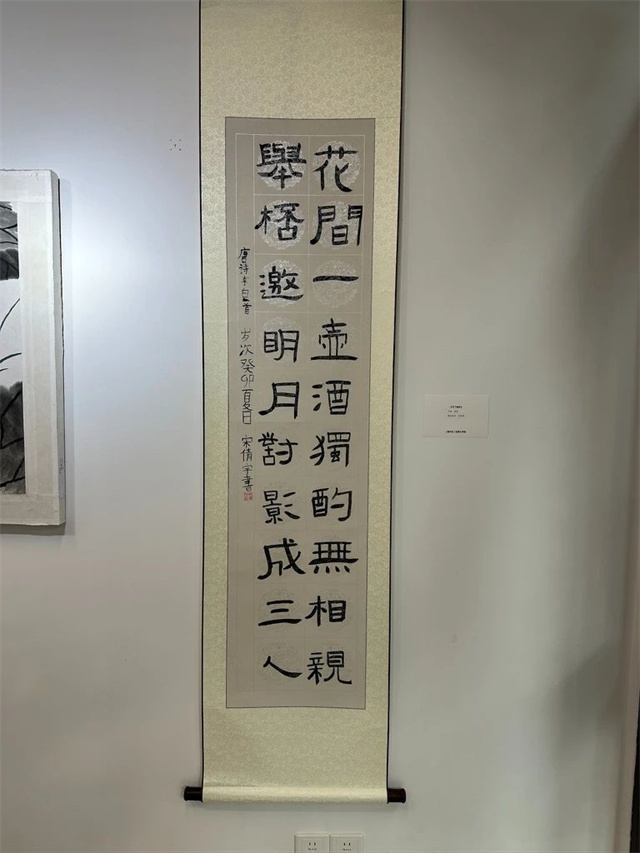 花間一壺酒獨酌無相親
舉桮邀明月對影成三人
唐詩李白一首 岁次癸卯夏日 宋倩宇書